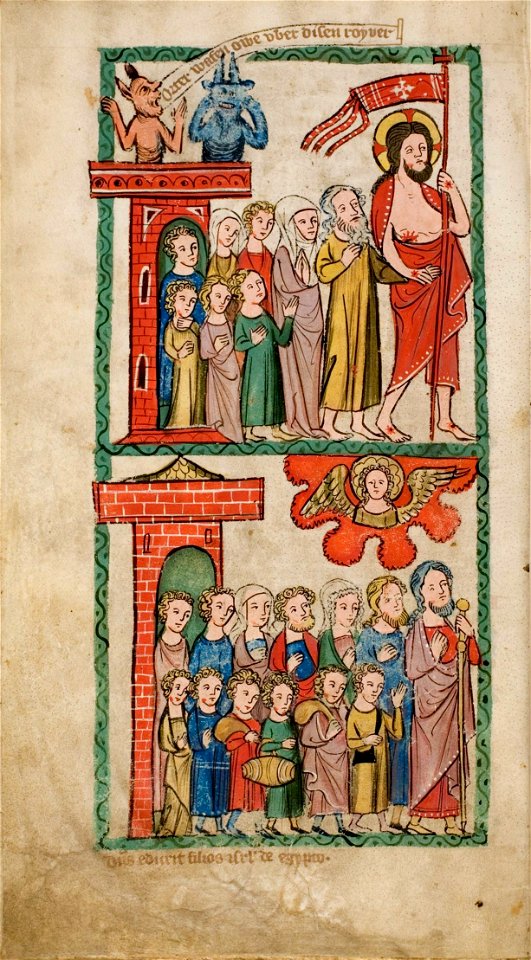 wafen owe vber disen royber
dns eduxit filios isrl' de egypto.